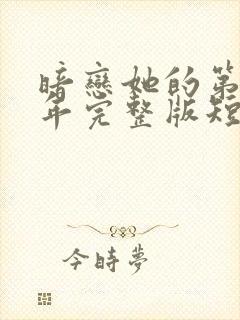 暗戀她的第
年完整版短
今時夢